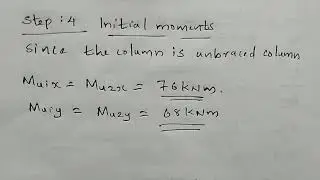 Step : 4 Initial moments
Since the column is unbraced column
Mu1x = Mu2x = 76 kNm.
Mu1y = Mu2y = 68 kNm